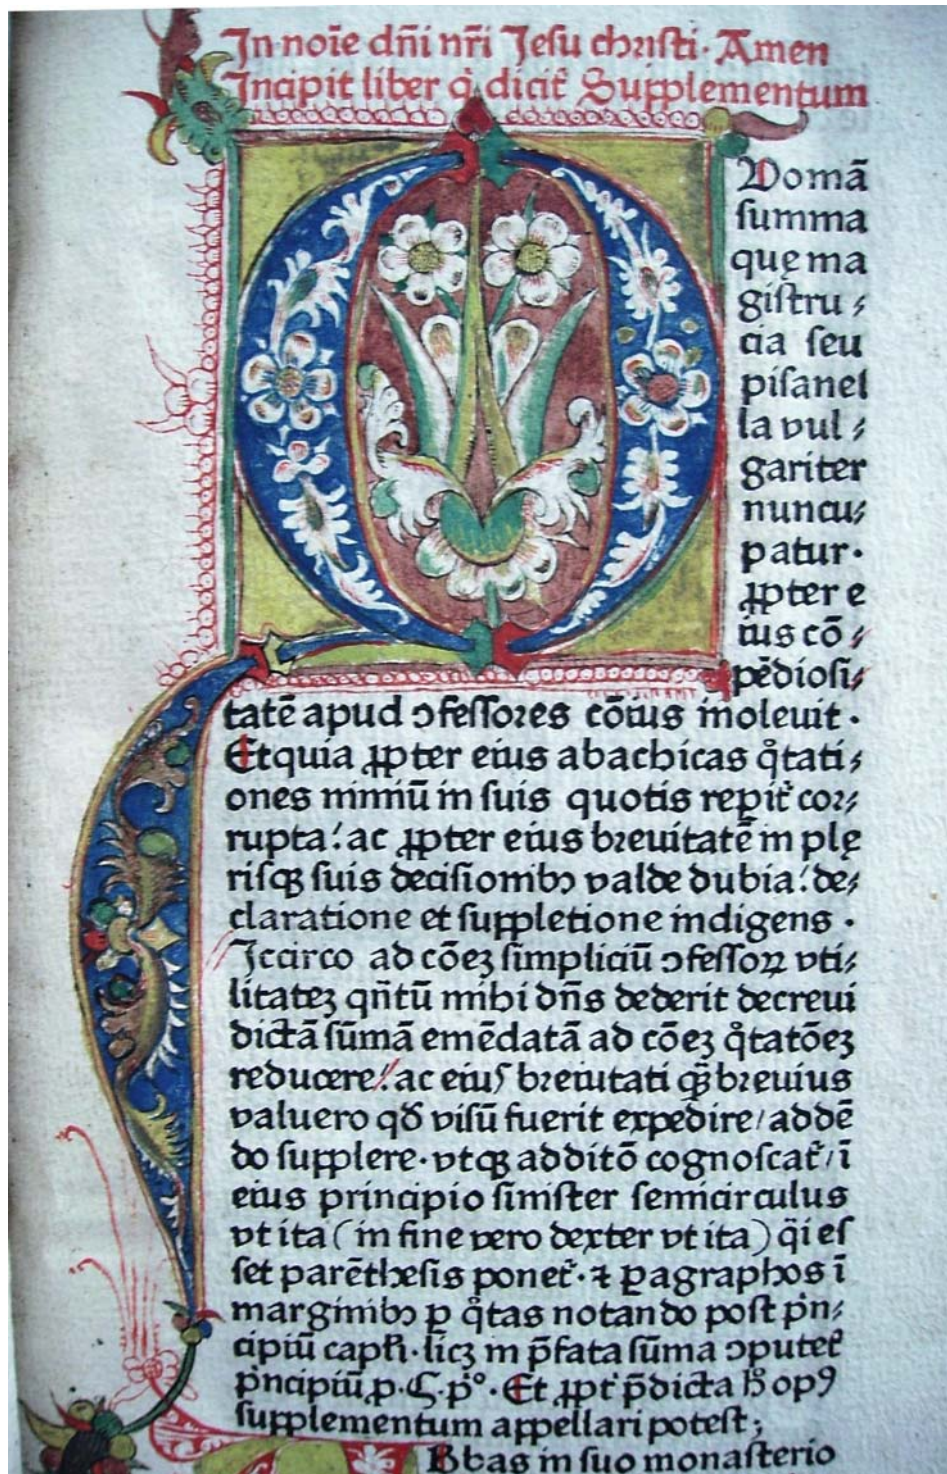 In noīe dñi nr̄i Jesu christi. Amen
Incipit liber q̇ dicit᷑ Supplementum
Q
Uomā
summa
quę ma
gistru⸗
cia seu
pisanel
la vul⸗
gariter
nuncu⸗
patur.
ꝓpter e
ius cō⸗
pēdiosi⸗
tatē apud ꝯfessores cōius inolevit.
Et quia ꝓpter eius abachicas q̊tati⸗
ones nimiū in suis quotis reperit᷑ cor⸗
rupta: ac ꝓpter eius brevitatē in plę
risqꝫ suis decisionibꝰ valde dubia: de⸗
claratione et suppletione indigens.
Iccirco ad cōeꝫ simpliciū ꝯfessoꝝ vti⸗
litateꝫ qñtū mihi dñs dederit decrevi
dictā sūmā emēdatā ad cōeꝫ q̊tatōeꝫ
reducere/ ac eius breuitati qȝ̄ brevius
valuero qđ visū fuerit expedire/ addē
do supplere. vtqꝫ additō cognoscat᷑/ ī
eius principio sinister semicirculus
vt ita ( in fine vero dexter vt ita ) q̄i es
set parēthesis ponet᷑. ⁊ ꝑagraphos ī
marginibꝰ ꝑ q̊tas notando post pͥn⸗
cipiū capłi. licꝫ in p̄fata sūma ꝯputet᷑
pͥncipiū ꝓ. §. pͦ. Et ꝓpt᷑ p̄dicta ħ opꝰ
supplementum appellari potest;
Bbas in suo monasterio